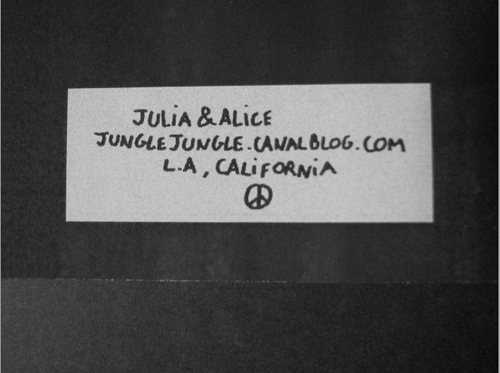 JULiA & ALiCE
JUNGLEJUNGLE.CANALBLOG.COM
L.A, CALiFORNiA